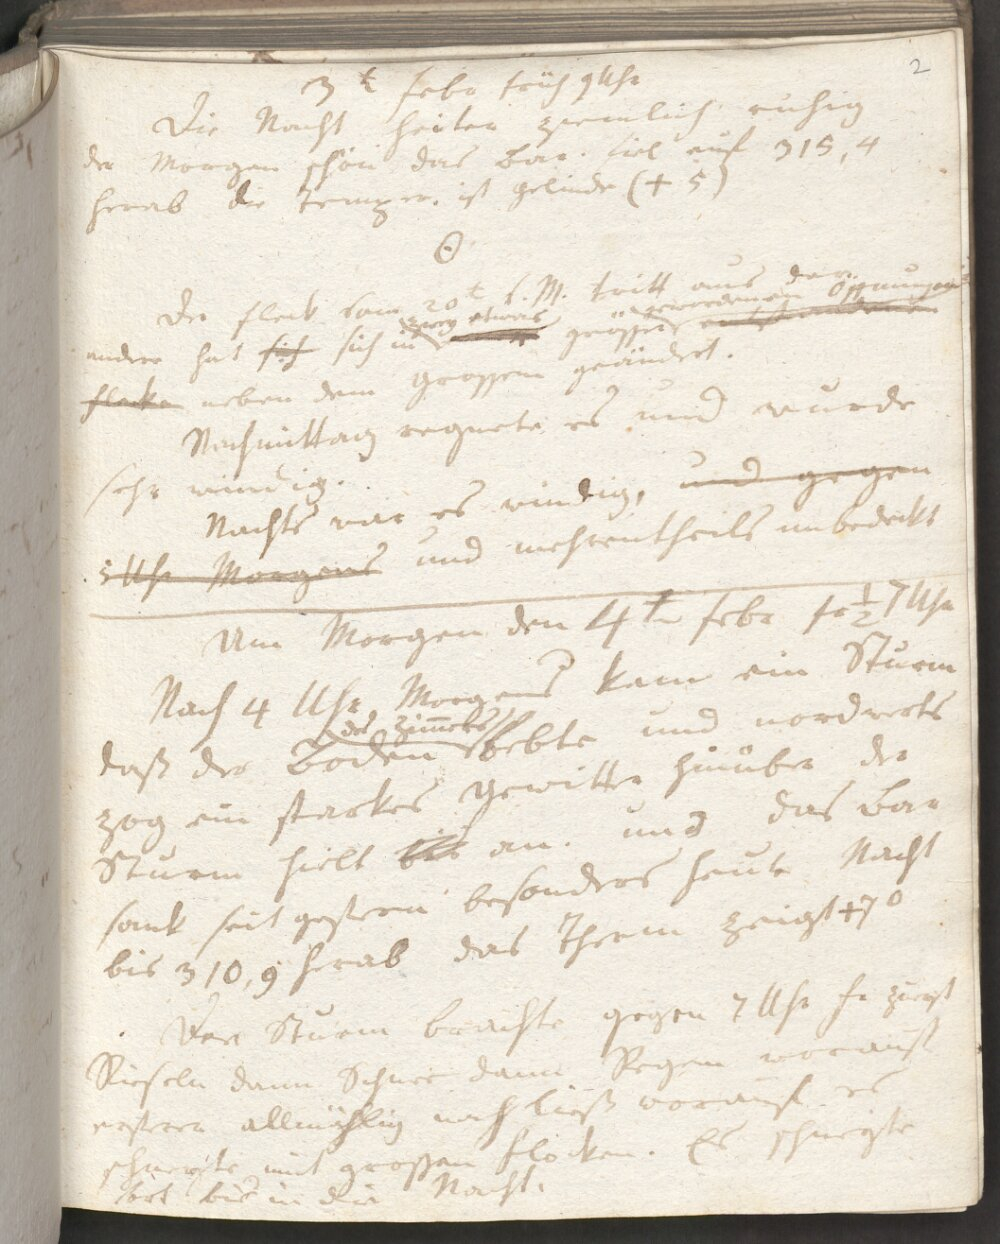 2
3t Febr früh 9 Uhr
Die Nacht heiter ziemlich ruhig
der Morgen schön das Bar. fiel auf 315,4
herab die Temper. ist gelinde (+ 5)
⊙
Der Fleck vom 20t v. M. tritt aus der
zwey etwas gewordenen Öffnungen
andere hat sich sich in größer
Flecke neben dem grossem geändert.
Nachmittag regnete es und wurde
sehr windig.
Nachts war es windig, und gegen
5 Uhr Morgens und mehrentheils unbedeckt
Am Morgen den 4t Febr fr ½7 Uhr
Nach 4 Uhr Morgens kam ein Sturm
des Zimmers
daß der Boden bebte und nordwerts
zog ein starkes Gewitter hinüber der
Sturm hielt bis an. und das Bar
sank seit gestern besonders heute Nacht
bis 310,9 herab das Therm zeigt +7°
Der Sturm brachte gegen 7 Uhr fr zuerst
Rieseln dann Schnee dann Regen worauf
ersterer allmählig nach ließ worauf es
schneyte mit großen Flocken. Es schneyte
fort bis in die Nacht.